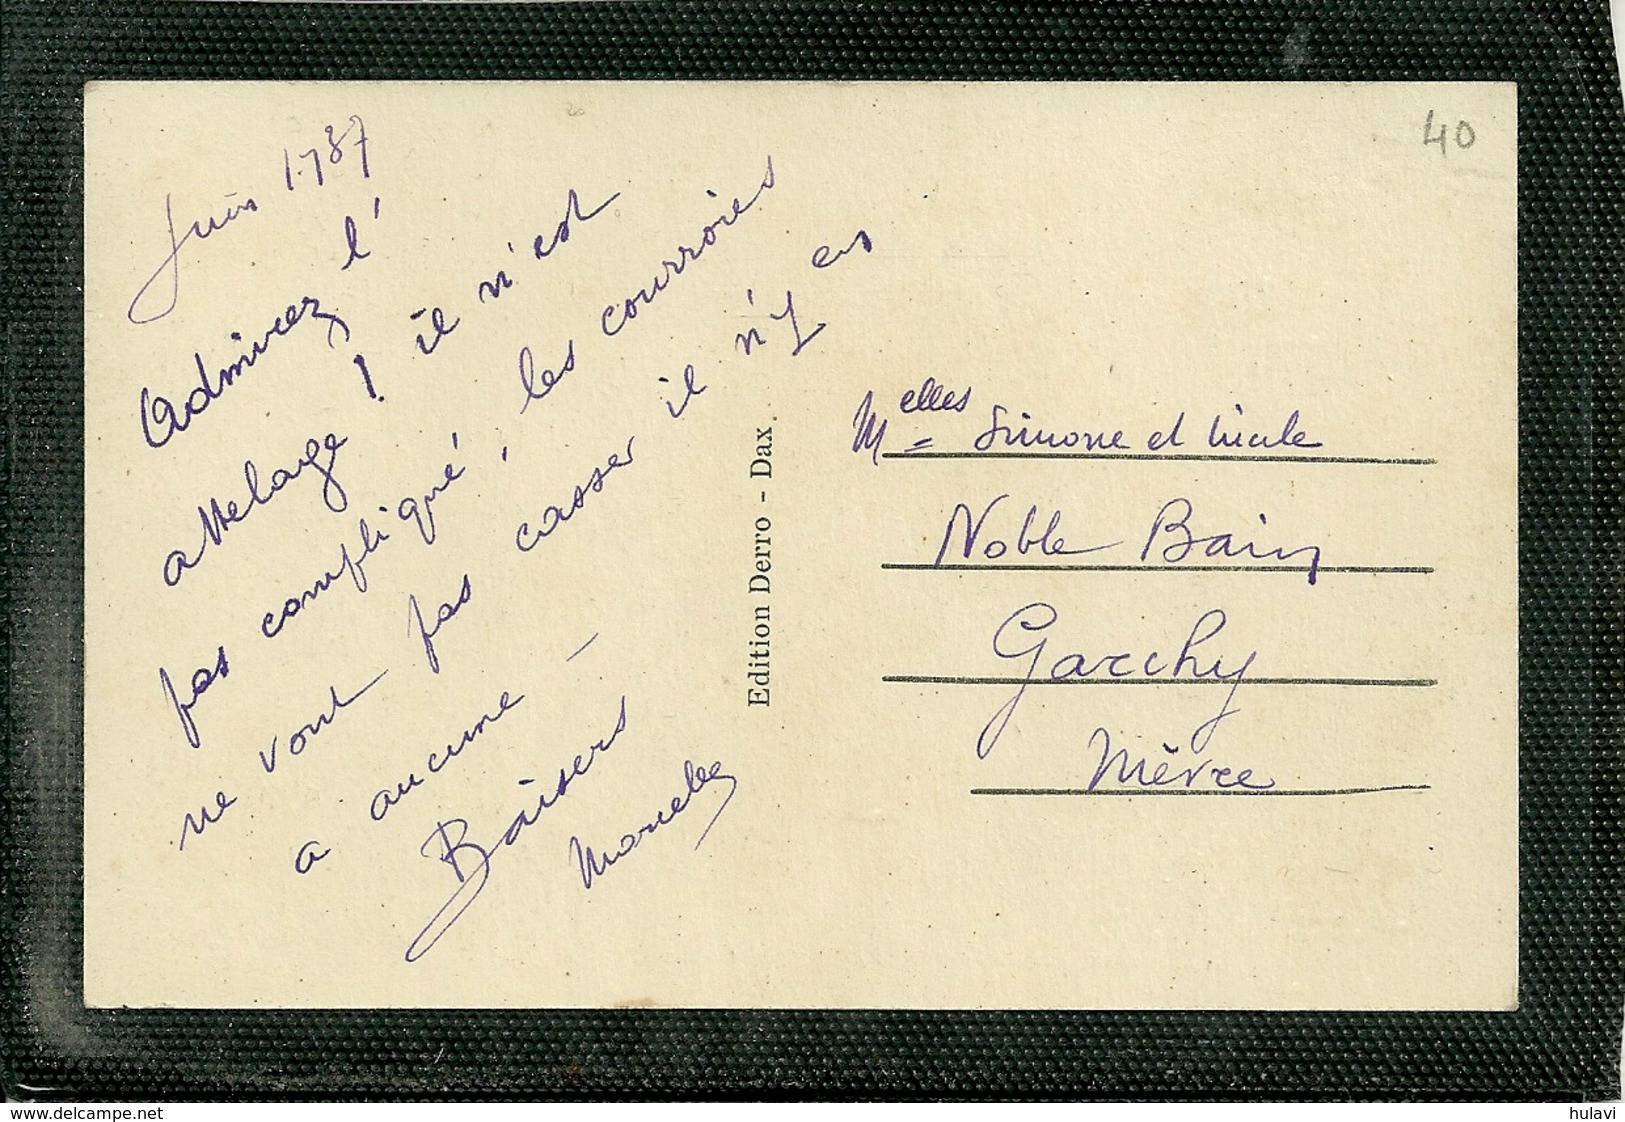 Juin 1937
Admirez l'
attelage ! il n'est
pas compliqué, les courroies
ne vont pas casser il n'y en
a aucune -
Baisers
Edition Derro - Dax
40
Melles Simone et
Noble Bain
Garchy
Nièvre
www.delcampe.net
hulavi